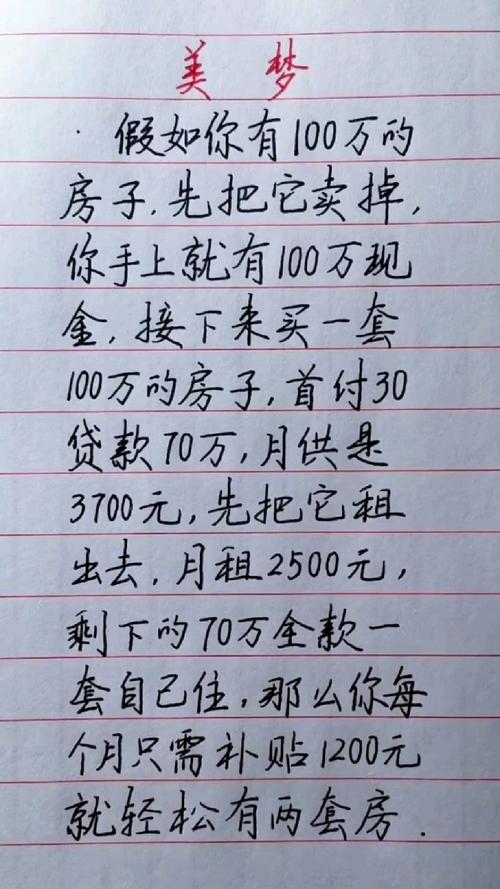 美 梦
假如你有100万的
房子.先把它卖掉,
你手上就有100万现
金,接下来买一套
100万的房子,首付30
贷款70万,月供是
3700元,先把它租
出去,月租2500元,
剩下的70万全款一
套自己住,那么你每
个月只需补贴1200元
就轻松有两套房.